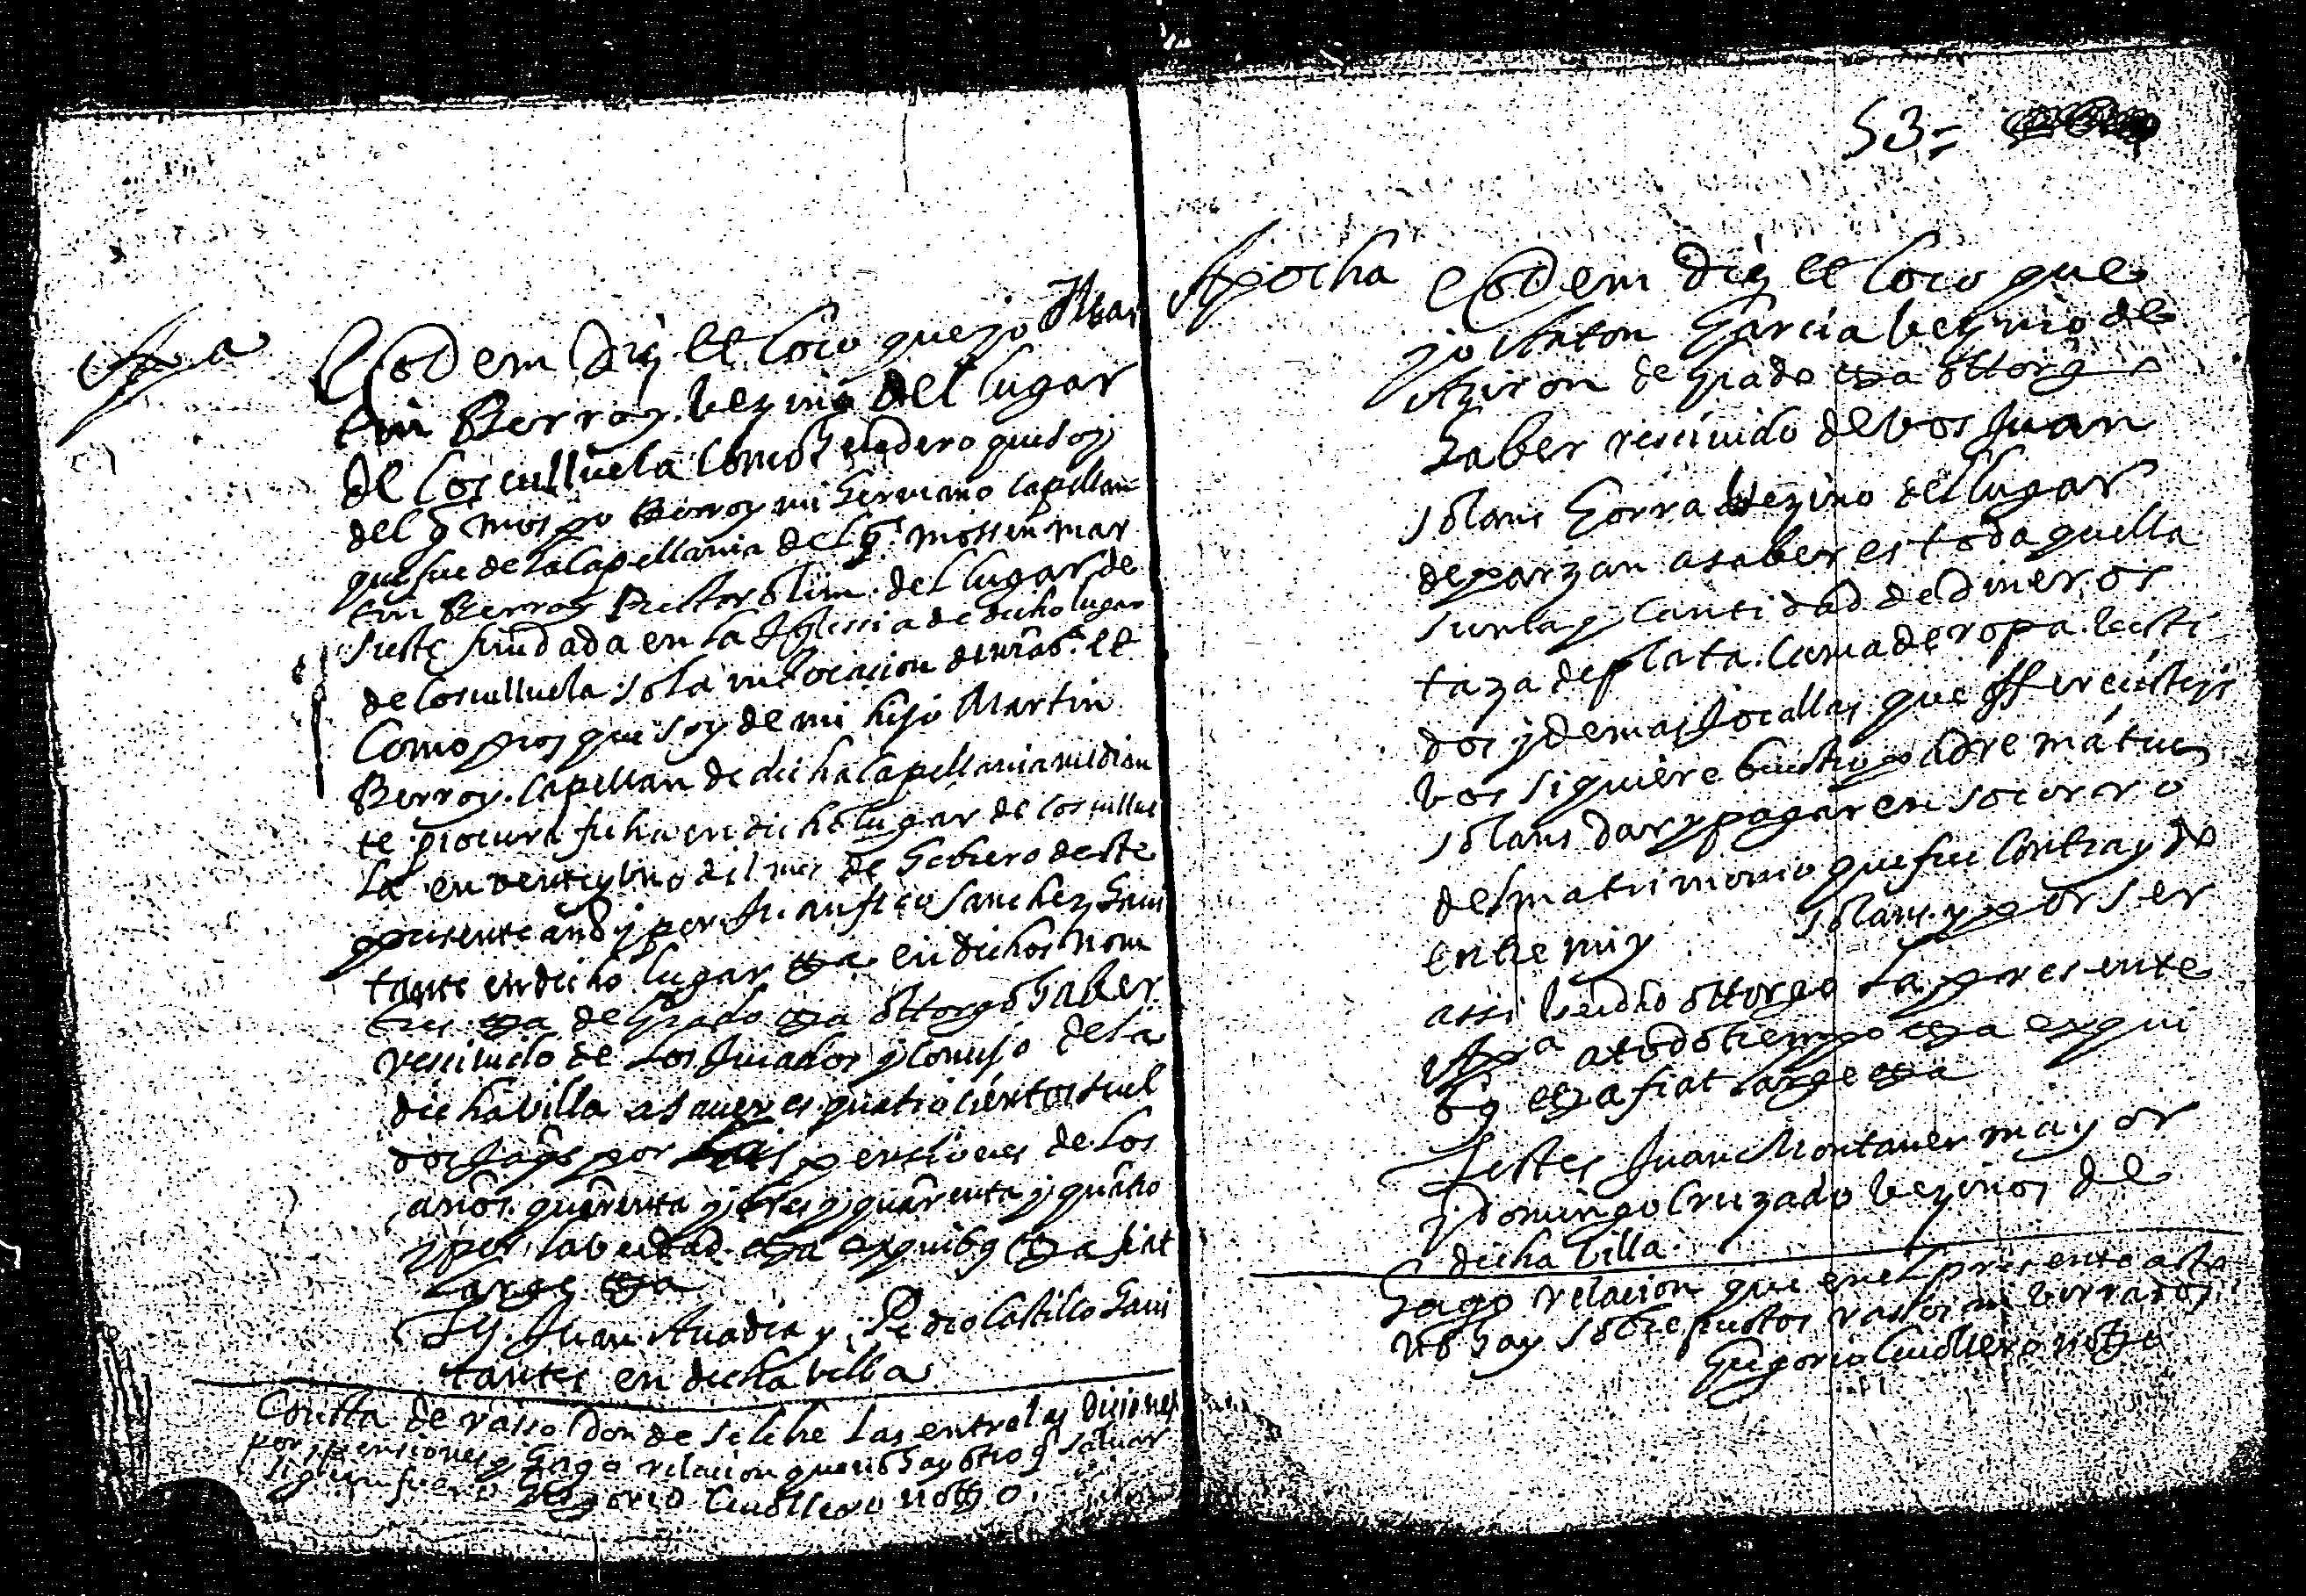 Apª
Eodem die et loco que yo Mar
tin Berroy vezino del lugar
de Cosculluela como heredero que soy
del qº mos pº Berroy mi hermano capellan
que fue de la Capellania del qº mossen mar
tin Berroy Rector olim del lugar de
fundada en la Iglesia de dicho lugar
de Cosculluela so la invocacion de et
Como que soy de mi hijo Martin
Berroy. Capellan de dicha Capellania median
te procura fecha en dicho lugar de Coscullue
la en veinte y uno del mes de Febrero deste
presente año y por Juan frco Sanchez havi
tante en dicho lugar etª en dichos nom
bres etª de grado etª ottorgo haber
resciuido de los Jurados y Consejo de la
dicha villa asauer es quatrocientos suel
dos Jaqs por pensiones de los
años. quarenta y tres y quarenta y quatro
y por la verdad etª ex quibus etª fiat
large etª
Ts. Juan Auadia y Pedro Castillo havi
tantes en dicha villa
Consta de rasso donde se lehe las entre las diciones
por y pensiones y hago relacion que no hay otro q saluar
segun fuero Gregorio Cauollero notº
53=
Apocha
eodem die et loco que
yo Anton Garcia vezino de
Aziron de grado etª ottorgo
haber resciuido de vos Juan
solans Gorra vezino del lugar
de parzan a saber es toda quella
suma y cantidad de dineros
taza de plata. Cama de ropa. besti
dos y demas Jocallas que offrecisteis
vos siquiere buestro padre
solans dar y pagar en socorro
del matrimonio que fue contraydo
entre mi y solans. y por ser
assi berdad ottorgo la presente
Apª a todo tiempo etª ex qui
bus etª fiat large etª
Testes Juan Montaner mayor
y domingo Cruzado vezinos de
dicha villa.
hago relacion que en el presente acto
no hay sobrepuestos rassos ni borrados
Gregorio Cauollero notº